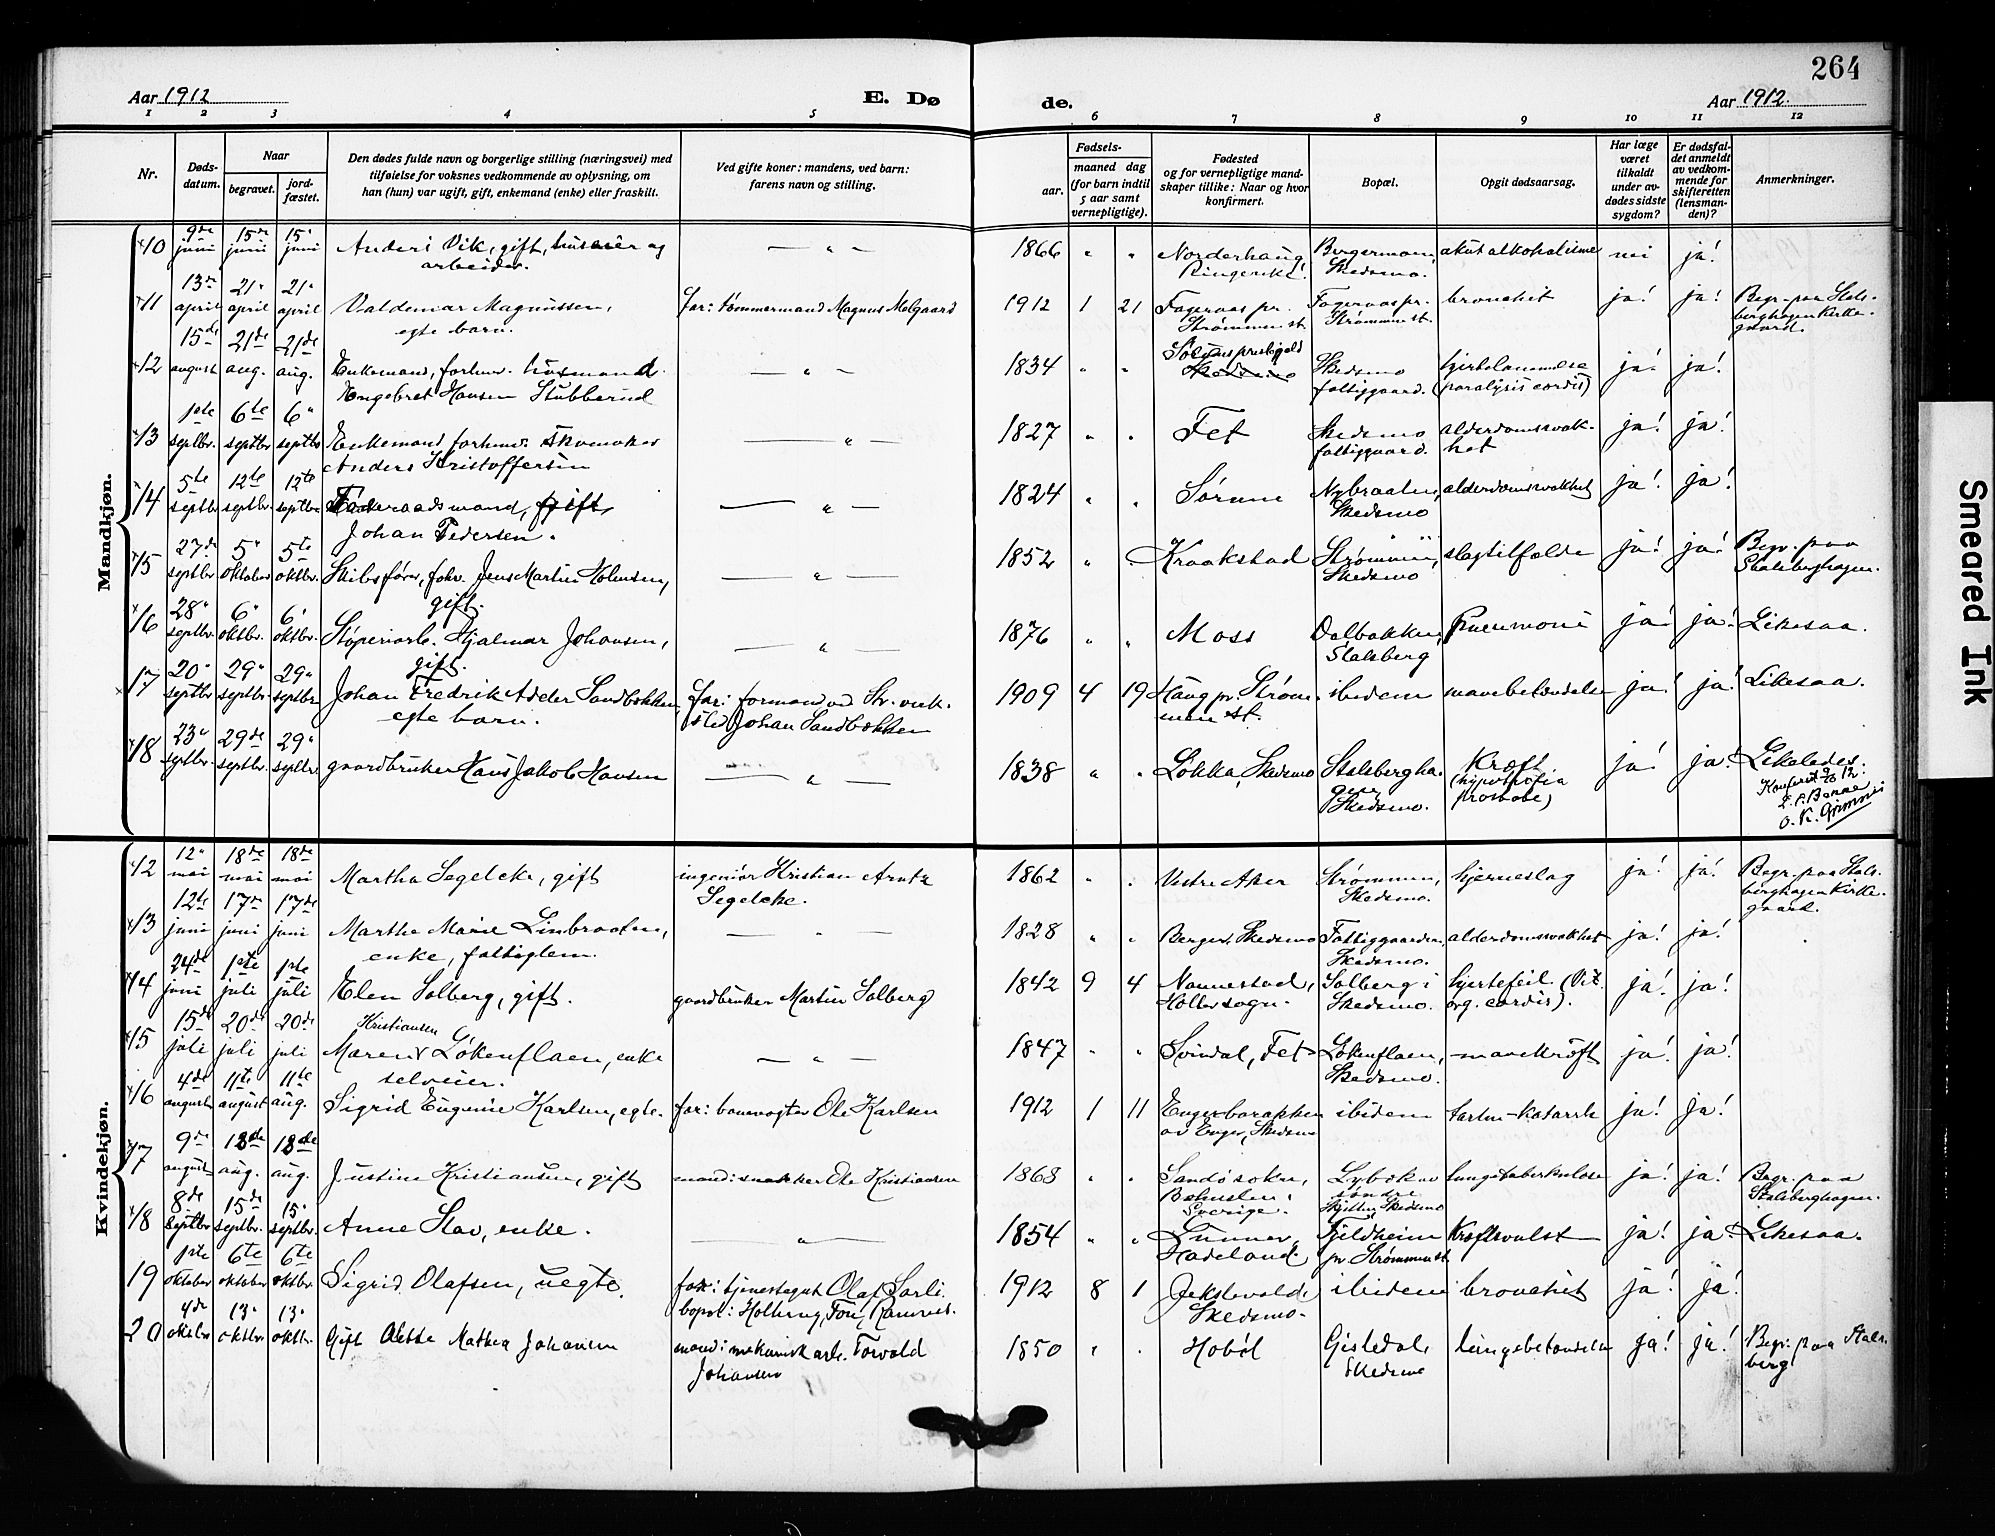 264
Aar 1912
E. Dø
de.
Aar 1912.
1 2 3 4 5 6 7 8 9 10 11 12
Nr.
Døds-
datum.
Naar
begravet.
jord-
fæstet.
Den dødes fulde navn og borgerlige stilling (næringsvei) med
tilføielse for voksnes vedkommende av oplysning, om
han (hun) var ugift, gift, enkemand (enke) eller fraskilt.
Ved gifte koner: mandens, ved barn:
farens navn og stilling.
Fødsels-
aar.
maaned dag
(for barn indtil
5 aar samt
vernepligtige).
Fødested
og for vernepligtige mand-
skaper tillike: Naar og hvor
konfirmert.
Bopæl.
Opgit dødsaarsag.
Har læge
været
tilkaldt
under av-
dødes sidste
sygdom?
Er dødsfal-
det anmeldt
av vedkom-
mende for
skifteretten
(lensman-
den)?
Anmerkninger.
Mandkjøn.
10 9de juni 15de juni 15" juni Anders Vik, gift, huseier og
arbeider. — " — 1866 " " Norderhaug,
Ringerike. Bergermoen,
Skedsmo. akut alkoholisme nei ja!
11 13de april 21" april 21" april Valdemar Magnussen,
egte barn. far: tømmermand Magnus Melgaard 1912 1 21 Fageraas pr.
Strømmen st. Fageraas pr.
Strømmen st. bronchit ja! ja! Begr. paa Stals-
berghagen kirke-
gaard.
12 15de august 21de aug. 21de aug. Enkemand, forhv. husmand
Engebret Hansen Stubberud — " — 1834 " " Solørs prestegjeld
Skedsmo Skedsmo
fattiggaard. hjertelammelse
(paralysis cordis) ja! ja!
13 1ste septbr. 6te septbr 6" septbr Enkemand forhenv. skomaker
Anders Kristoffersen — " — 1827 " " Fet Skedsmo
fattiggaard. alderdomssvak-
het ja! ja!
14 5te septbr 12te septbr. 12te septbr Føderaadsmand, gift,
Johan Pedersen. — " — 1824 " " Sørum Nybraaten,
Skedsmo alderdomssvakhet ja! ja!
15 27de septbr 5" oktober 5te oktbr. Skibsfører, forhv. Jens Martin Holmsen,
gift. — " — 1852 " " Kraakstad Strømmen,
Skedsmo slagtilfælde ja! ja! Begr. paa
Stalsberghagen.
16 28" septbr. 6" oktbr. 6" oktbr. Støperiarb. Hjalmar Johansen,
gift. — " — 1876 " " Moss Dalbakken,
Stalsberg Pneumoni ja! ja! Likesaa.
17 20" septbr 29" septbr 29" septbr. Johan Fredrik Adeler Sandbækken
egte barn. far: formand ved Str. verk-
sted Johan Sandbækken 1909 4 19 Haug pr. Strøm-
men st. ibidem mavebetændelse ja! ja! Likesaa.
18 23" septbr. 29de septbr. 29" septbr. gaardbruker Hans Jakob Hansen — " — 1838 " " Løkka, Skedsmo Stalsbergha-
gen,
Skedsmo. Kræft
(hypertrofia
prostatæ) ja! ja! Likeledes.
Konferert
Kvindekjøn.
12 12" mai 18de mai 18de mai Martha Segelcke, gift ingeniør Kristian Arntz
Segelcke. 1862 " " Vestre Aker Strømmen,
Skedsmo. hjerneslag ja! ja! Begr. paa Stals-
berghagen kirke-
gaard.
13 12te juni 17de juni 17de juni Marthe Marie Linbraaten,
enke, fattiglem. — " — 1828 " " Berger, Skedsmo Fattiggaarden,
Skedsmo. alderdomssvakhet ja! ja!
14 24de juni 1ste juli 1ste juli Elen Solberg, gift. gaardbruker Martin Solberg 1842 9 4 Nannestad,
Holter sogn. Solberg i
Skedsmo. hjertefeil (Vit.
org. cordis). ja! ja!
15 15de juli 20de juli 20de juli Maren Kristiansen Løkenflaen, enke
selveier. — " — 1847 " " Svindal, Fet Løkenflaen,
Skedsmo. mavekræft ja! ja!
16 4de august 11te august 11te aug. Sigrid Eugenie Karlsen, egte. far: banevogter Ole Karlsen 1912 1 11 Engerbarakken
av Enger, Skedsmo ibidem tarm-katarrh ja! ja!
17 9de august 13de aug. 13de aug. Justine Kristiansen, gift mand: snekker Ole Kristiansen 1868 " " Sandø sokn,
Bohuslen,
Sverige. søndre
Skjetten, Skedsmo lungetuberkulose ja! ja! Begr. paa
Stalsberghagen.
18 8de septbr 15de septbr. 15" septbr. Anne Slav, enke. — " — 1854 " " Lunner,
Hadeland. Fjeldheim
pr. Strømmen st. Kræftsvulst ja! ja! Likesaa.
19 1ste oktober 6te oktober 6te oktbr. Sigrid Olafsen, uegte. far: tjenestegut Olaf Sørli
bopæl: Holterug, Fon, Ramnes. 1912 8 1 Jekslevold,
Skedsmo. ibidem bronchit ja! ja!
20 4de oktbr 13" oktbr. 13" oktbr. Gift Alette Mathea Johansen mand: mekanisk arb. Torvald
Johansen 1850 " " Hobøl Gistedal,
Skedsmo lungebetændelse ja! ja! Begr. paa Stals-
berg
Smeared Ink